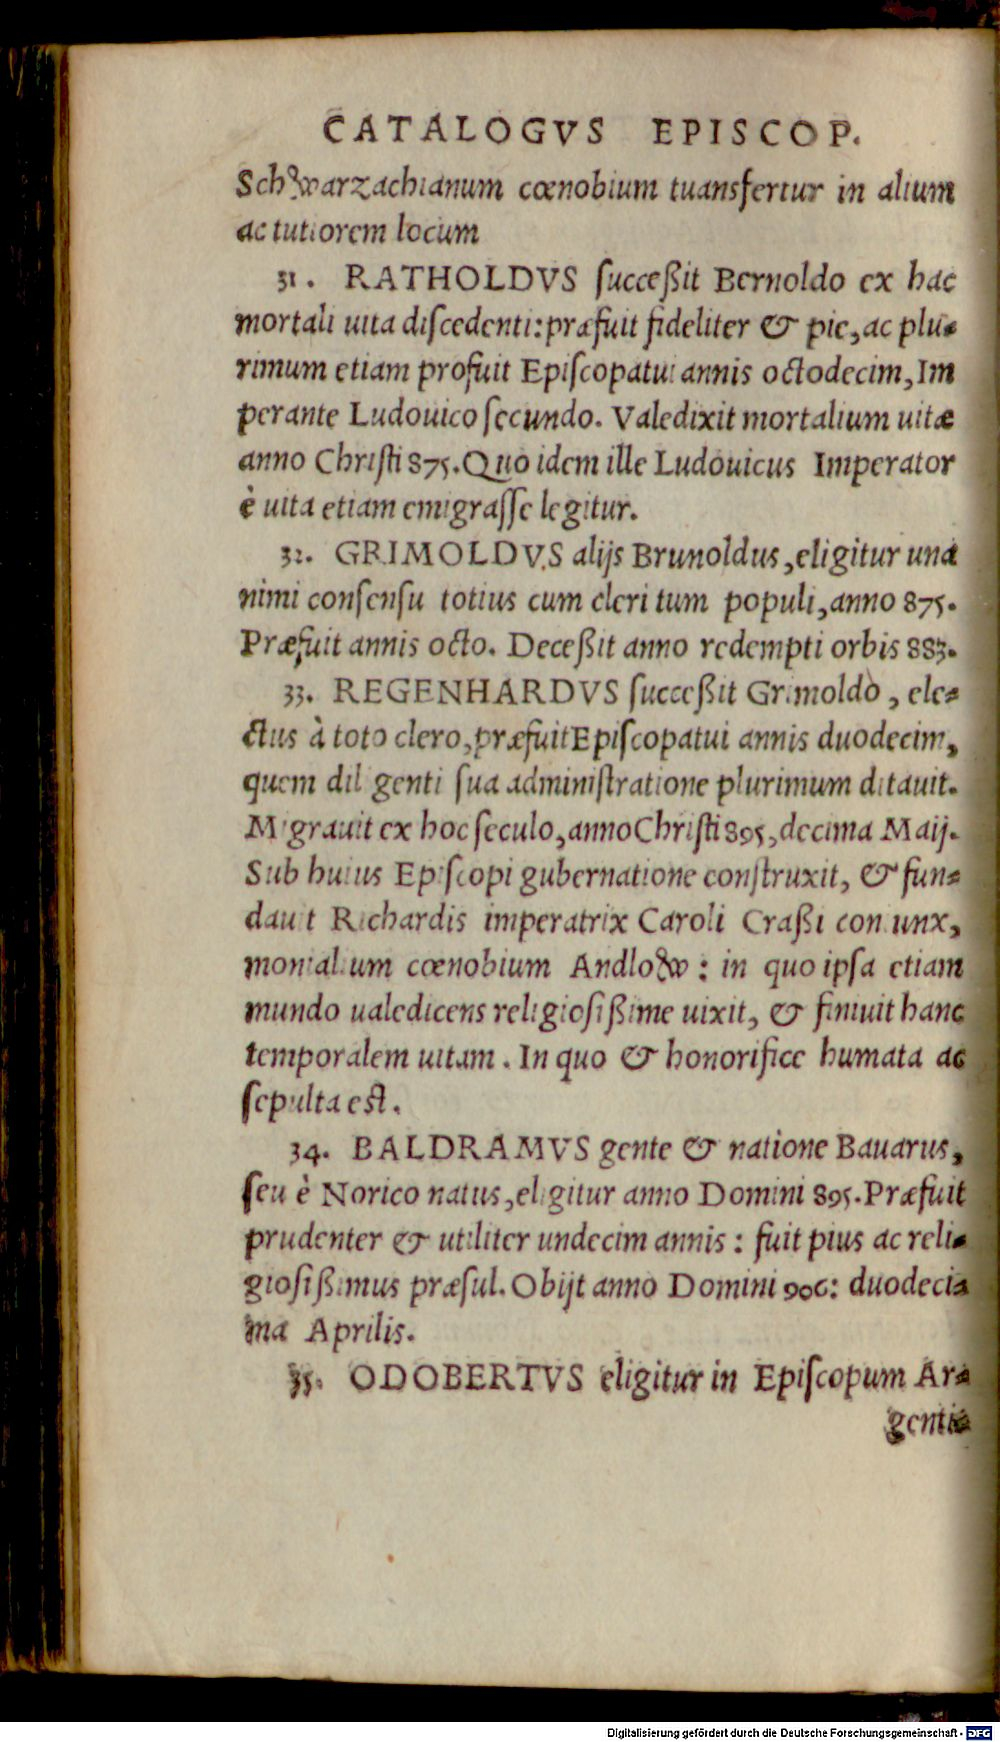 CATALOGVS EPISCOP.
Schwarzachianum cœnobium tuansfertur in alium
ac tutiorem locum
31. RATHOLDVS ſucceßit Bernoldo ex hac
mortali uita diſcedenti: præfuit fideliter & pie, ac plu-
rimum etiam profuit Epiſcopatui annis octodecim, Im
perante Ludouico ſecundo. Valedixit mortalium uitæ
anno Chriſti 875. Quo idem ille Ludouicus Imperator
è uita etiam emigraſſe legitur.
32. GRIMOLDVS alijs Brunoldus, eligitur una
nimi conſenſu totius cum cleri tum populi, anno 875.
Præfuit annis octo. Deceßit anno redempti orbis 883.
33. REGENHARDVS ſucceßit Grimoldo, ele-
ctus à toto clero, præfuit Epiſcopatui annis duodecim,
quem diligenti ſua adminiſtratione plurimum ditauit.
Migrauit ex hoc ſeculo, anno Chriſti 895, decima Maij.
Sub huius Epiſcopi gubernatione conſtruxit, & fun-
dauit Richardis imperatrix Caroli Craßi coniunx,
monialium cœnobium Andlow: in quo ipſa etiam
mundo ualedicens religioſißime uixit, & finiuit hanc
temporalem uitam. In quo & honorifice humata ac
ſepulta eſt.
34. BALDRAMVS gente & natione Bauarus,
ſeu è Norico natus, eligitur anno Domini 895. Præfuit
prudenter & utiliter undecim annis: fuit pius ac reli-
gioſißimus præſul. Obijt anno Domini 906: duodeci-
ma Aprilis.
35. ODOBERTVS eligitur in Epiſcopum Ar-
genti-
Digitalisierung gefördert durch die Deutsche Forschungsgemeinschaft - DFG